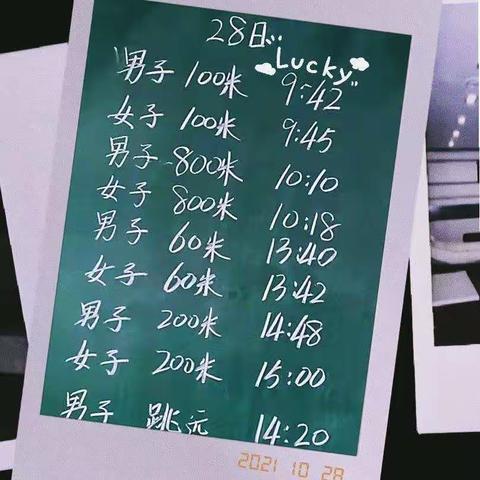 28日
Lucky
男子 100米 9:42
女子 100米 9:45
男子 800米 10:10
女子 800米 10:18
男子 60米 13:40
女子 60米 13:42
男子 200米 14:48
女子 200米 15:00
男子 跳远 14:20
2021 10 28